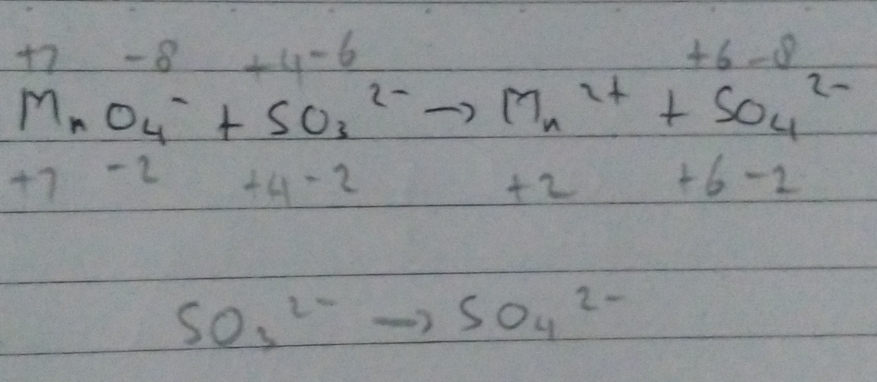 +7 -8 +4-6 +6-8
MnO₄⁻ + SO₃²⁻ → Mn²⁺ + SO₄²⁻
+7 -2 +4-2 +2 +6-2
SO₃²⁻ → SO₄²⁻